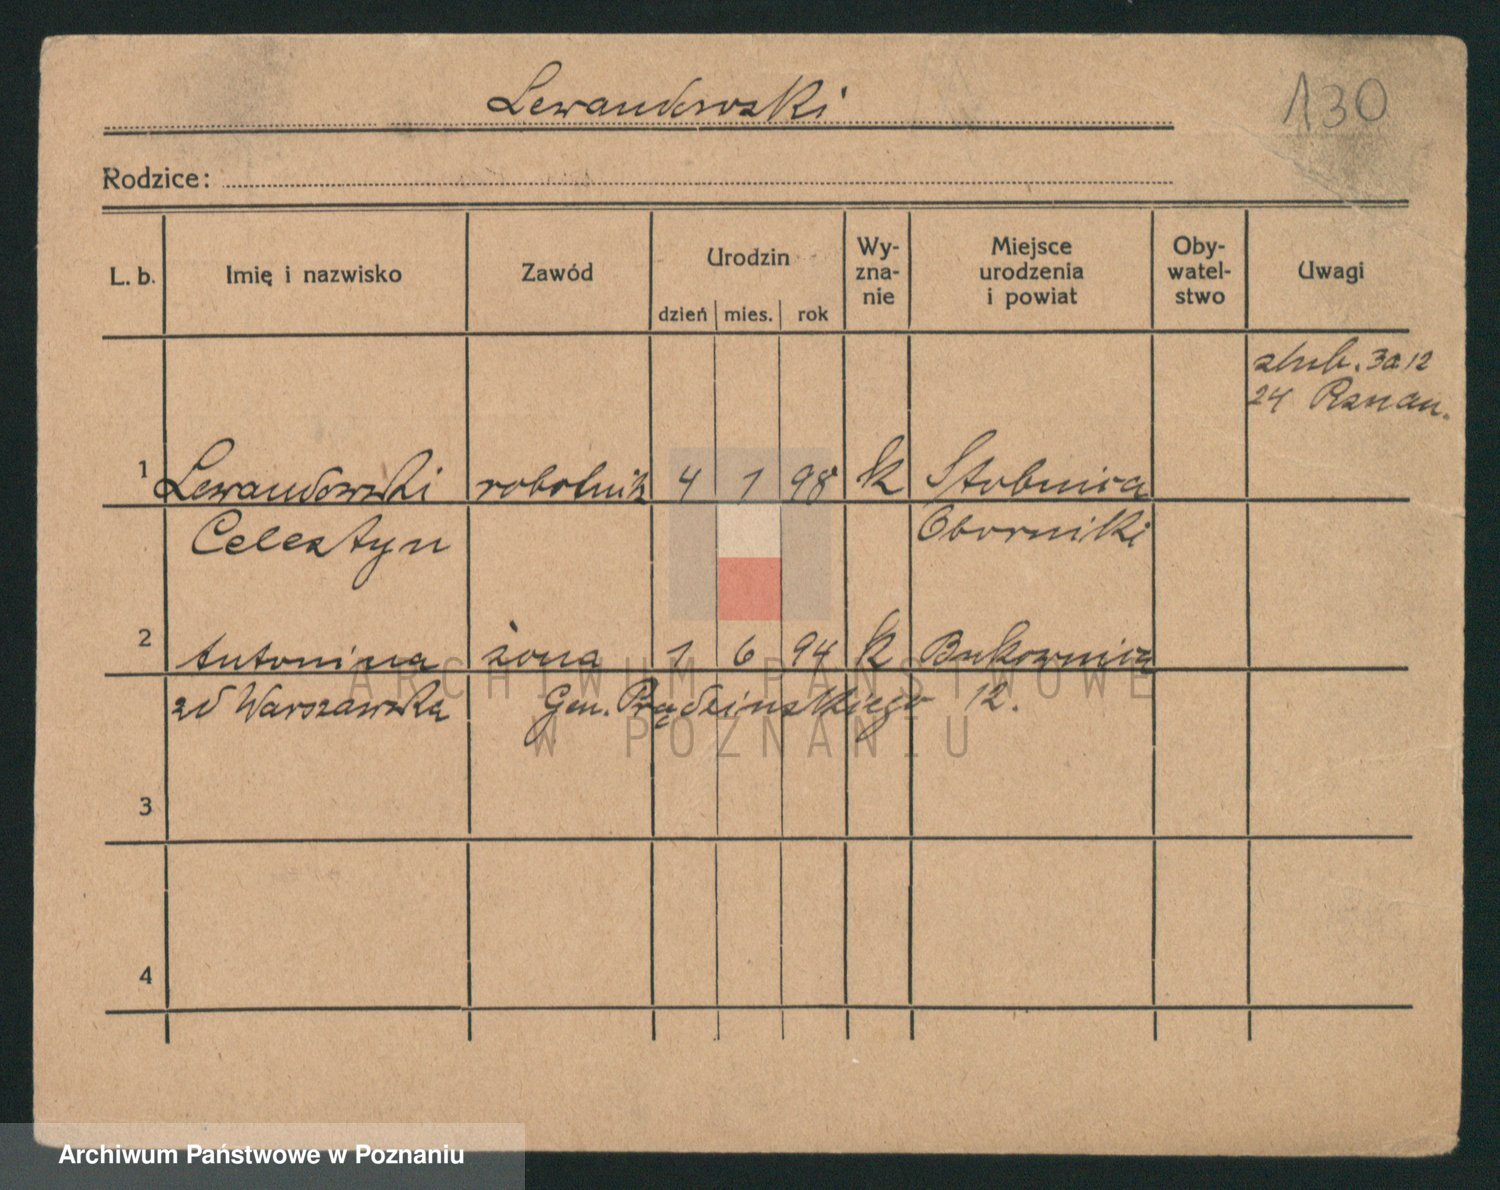 Lewandowski
130
Rodzice:
L. b. Imię i nazwisko Zawód Urodzin dzień mies. rok Wy-zna-nie Miejsce urodzenia i powiat Oby-watel-stwo Uwagi
ślub. 30 12
24 Poznań.
1 Lewandowski robotnik 4 1 98 k Stobnica
Celestyn Oborniki
2 Antonina żona 1 6 94 k Bukownica
zd Warszawska Gen. Prądzinskiego 12.
3
4
ARCHIWUM PAŃSTWOWE
W POZNANIU
Archiwum Państwowe w Poznaniu